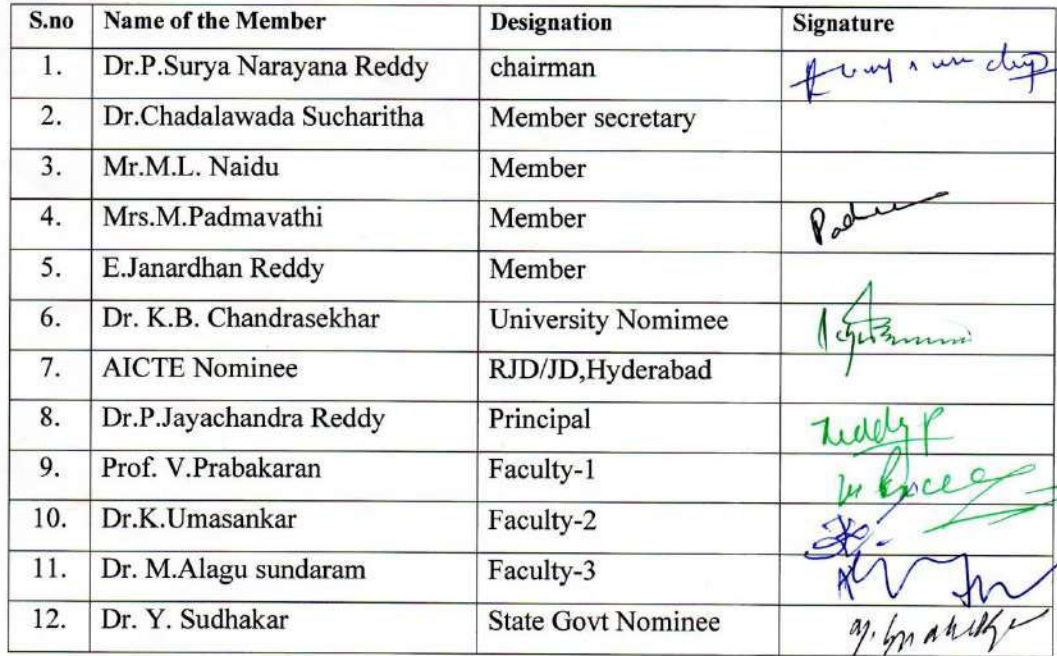 S.no Name of the Member Designation Signature
1. Dr.P.Surya Narayana Reddy chairman
2. Dr.Chadalawada Sucharitha Member secretary
3. Mr.M.L. Naidu Member
4. Mrs.M.Padmavathi Member
5. E.Janardhan Reddy Member
6. Dr. K.B. Chandrasekhar University Nomimee
7. AICTE Nominee RJD/JD,Hyderabad
8. Dr.P.Jayachandra Reddy Principal Reddy P
9. Prof. V.Prabakaran Faculty-1
10. Dr.K.Umasankar Faculty-2
11. Dr. M.Alagu sundaram Faculty-3
12. Dr. Y. Sudhakar State Govt Nominee